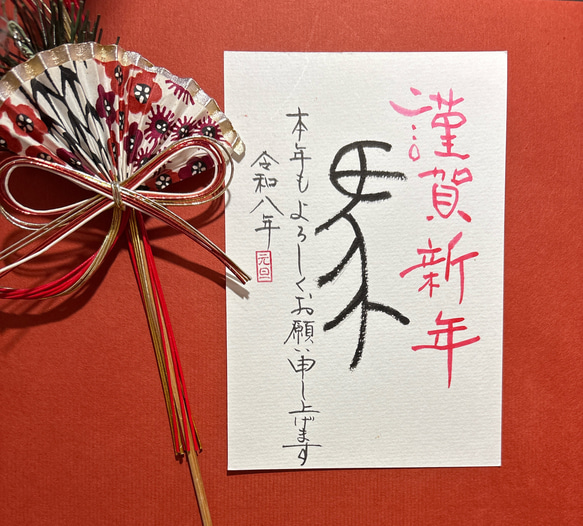 謹賀新年
馬
本年もよろしくお願い申し上げます
令和八年
元旦